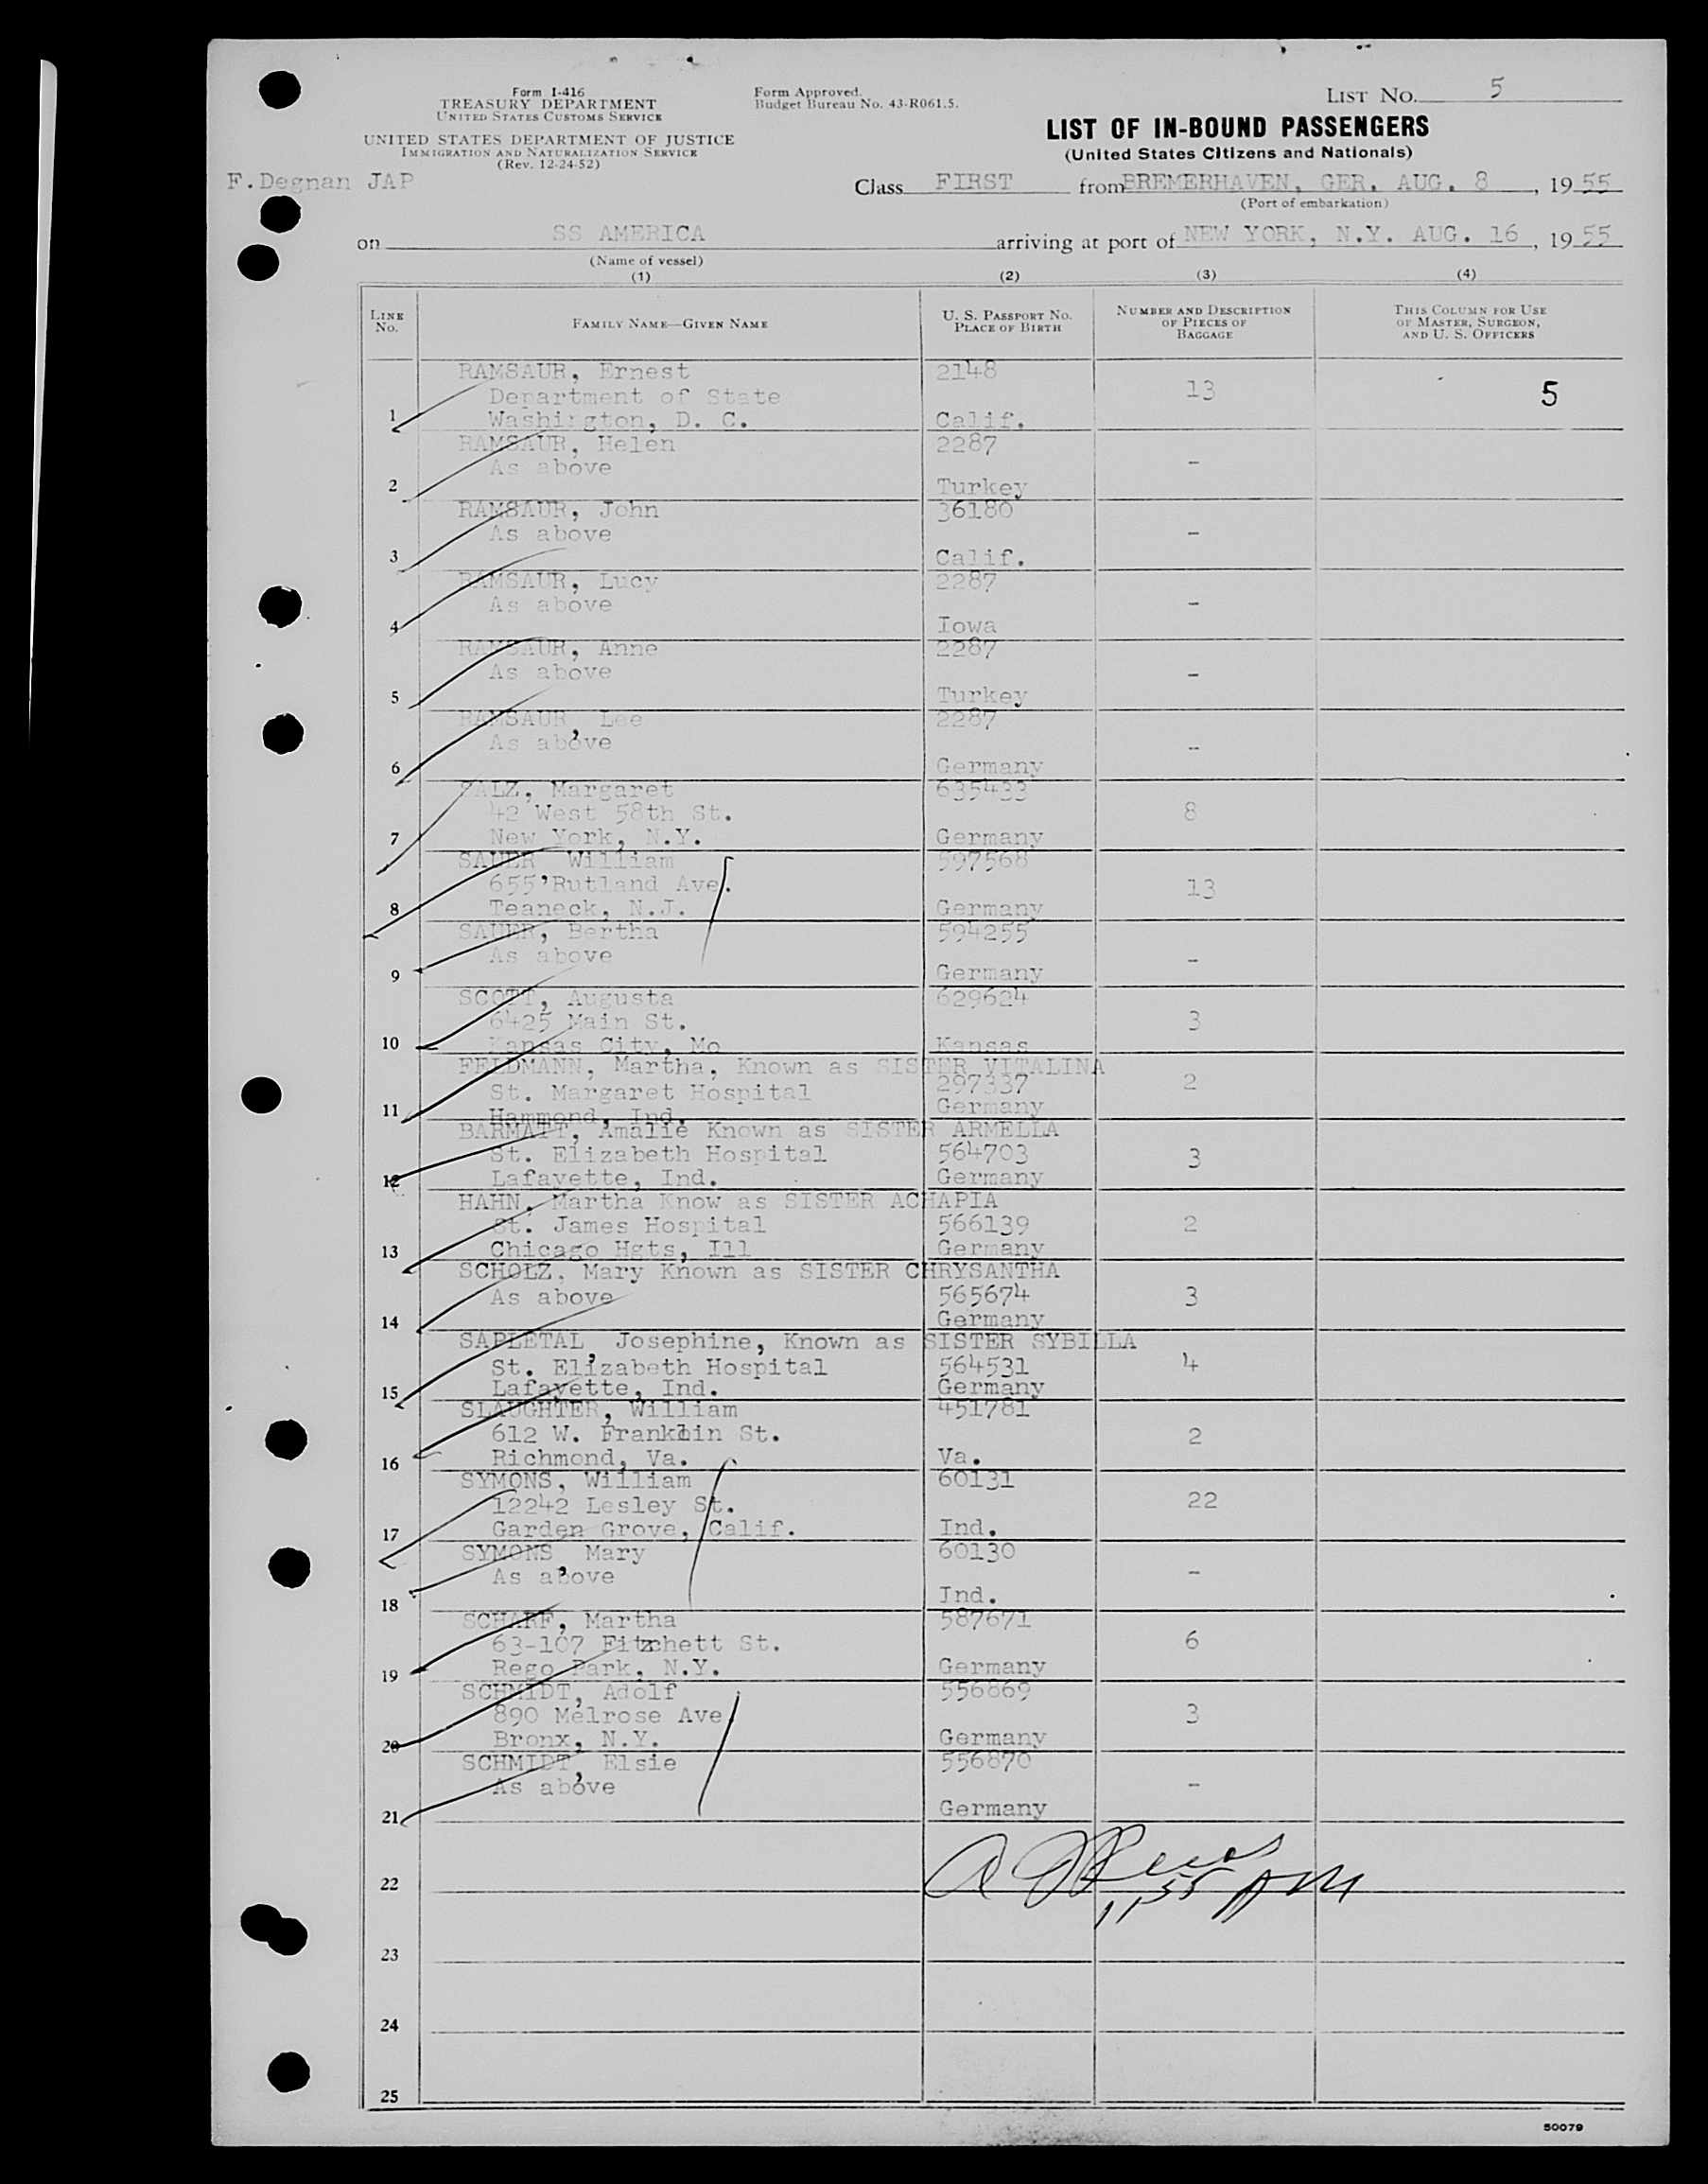 Form I-416
TREASURY DEPARTMENT
UNITED STATES CUSTOMS SERVICE
UNITED STATES DEPARTMENT OF JUSTICE
IMMIGRATION AND NATURALIZATION SERVICE
(Rev. 12-24-52)
Form Approved.
Budget Bureau No. 43-R061.5.
LIST NO. 5
LIST OF IN-BOUND PASSENGERS
(United States Citizens and Nationals)
F.Degnan JAP
Class FIRST from BREMERHAVEN, GER. AUG. 8, 1955
(Port of embarkation)
on SS AMERICA arriving at port of NEW YORK, N.Y. AUG. 16, 1955
(Name of vessel)
(1) (2) (3) (4)
LINE NO. FAMILY NAME—GIVEN NAME U. S. PASSPORT NO. PLACE OF BIRTH NUMBER AND DESCRIPTION OF PIECES OF BAGGAGE THIS COLUMN FOR USE OF MASTER, SURGEON, AND U. S. OFFICERS
RAMSAUR, Ernest 2148
Department of State 13 5
1 Washington, D. C. Calif.
RAMSAUR, Helen 2287
As above -
2 Turkey
RAMSAUR, John 36180
As above -
3 Calif.
RAMSAUR, Lucy 2287
As above -
4 Iowa
RAMSAUR, Anne 2287
As above -
5 Turkey
RAMSAUR, Lee 2287
As above -
6 Germany
SALZ, Margaret 635433
42 West 58th St. 8
7 New York, N.Y. Germany
SAUER, William 597568
655 Rutland Ave. 13
8 Teaneck, N.J. Germany
SAUER, Bertha 594255
As above -
9 Germany
SCOTT, Augusta 629624
6425 Main St. 3
10 Kansas City, Mo Kansas
FELDMANN, Martha, Known as SISTER VITALINA
St. Margaret Hospital 297337 2
11 Hammond, Ind. Germany
BARMATT, Amalie Known as SISTER ARMELLA
St. Elizabeth Hospital 564703 3
12 Lafayette, Ind. Germany
HAHN, Martha Know as SISTER ACHAPIA
St. James Hospital 566139 2
13 Chicago Hgts, Ill Germany
SCHOLZ, Mary Known as SISTER CHRYSANTHA
As above 565674 3
14 Germany
SAPLETAL, Josephine, Known as SISTER SYBILLA
St. Elizabeth Hospital 564531 4
15 Lafayette, Ind. Germany
SLAUGHTER, William 451781
612 W. Franklin St. 2
16 Richmond, Va. Va.
SYMONS, William 60131
12242 Lesley St. 22
17 Garden Grove, Calif. Ind.
SYMONS, Mary 60130
As above -
18 Ind.
SCHARF, Martha 587671
63-107 St. 6
19 Rego Park, N.Y. Germany
SCHMIDT, Adolf 556869
890 Melrose Ave. 3
20 Bronx, N.Y. Germany
SCHMIDT, Elsie 556870
As above -
21 Germany
22
11 55 AM
23
24
25
50079